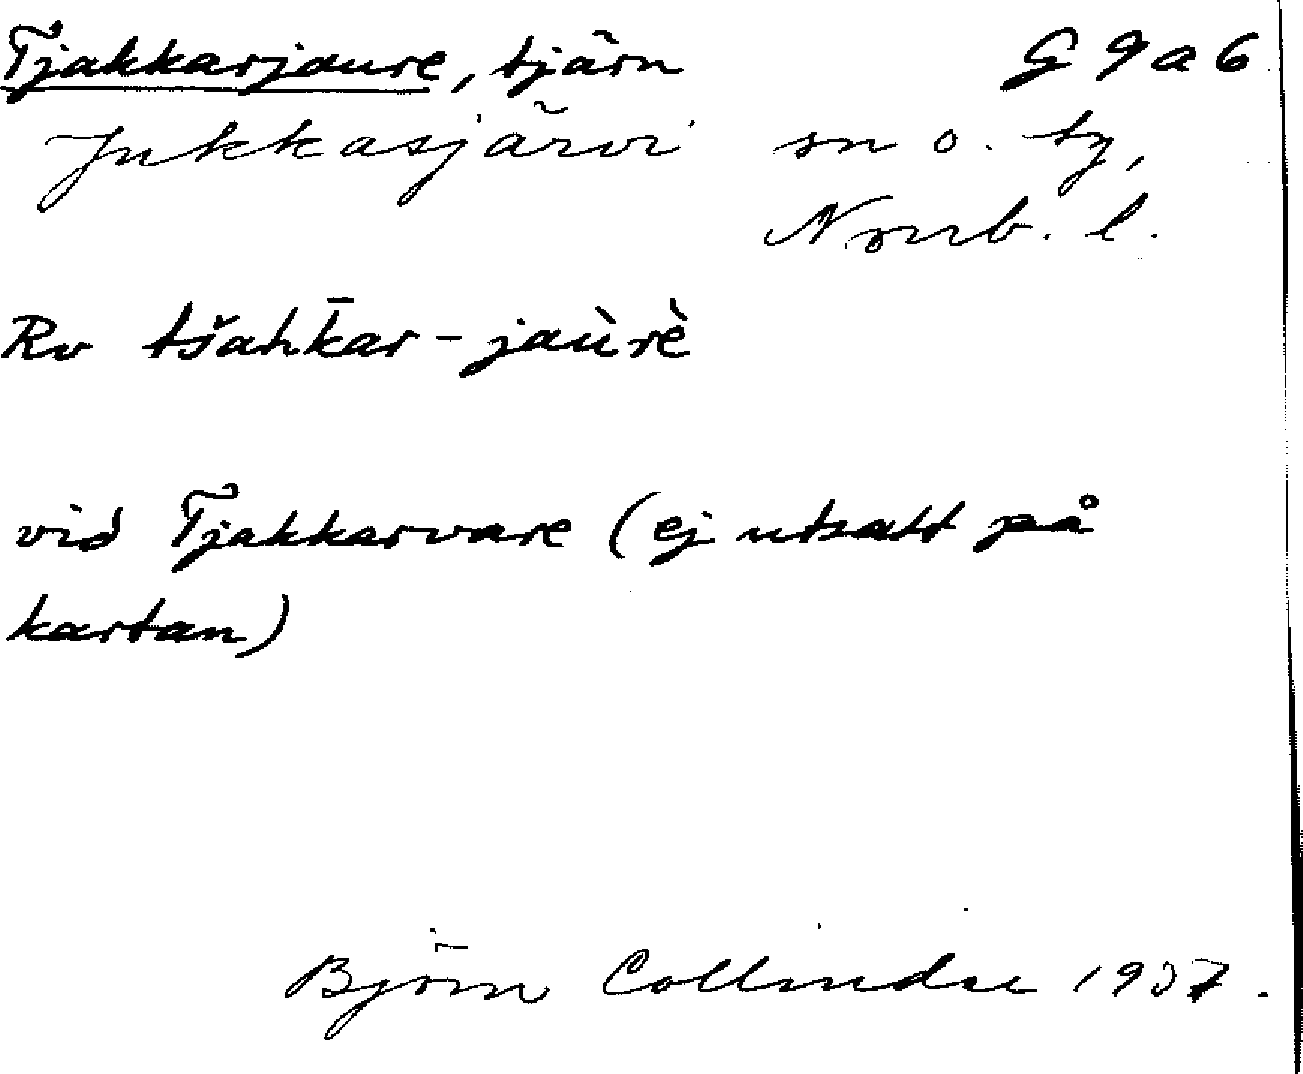 Tjakkarjaure, tjärn G 9 a 6
Jukkasjärvi sn o. tg,
Norrb. l.
Rv tšahk̄ar-jaùrè
vid Tjakkarvare (ej utsatt på
kartan)
Björn Collinder 1937.